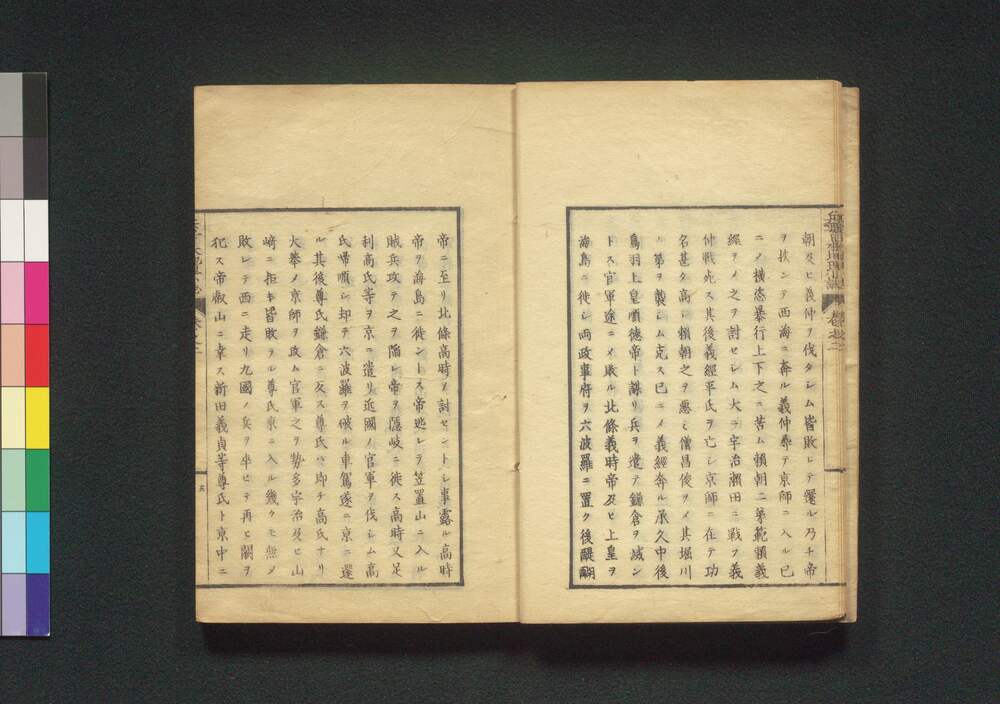 朝及ヒ義仲ヲ伐タシム皆敗レテ還ル乃チ帝
ヲ挾ンテ西海ニ奔ル義仲尋テ京師ニ入ル已
ニノ横恣暴行上下之ニ苦ム頼朝二弟範頼義
經ヲメ之ヲ討セシム大ニ宇治瀬田ニ戰フ義
仲戰死ス其後義經平氏ヲ亡シ京師ニ在テ功
名甚タ高シ頼朝之ヲ悪ミ僧昌俊ヲメ其堀川
ノ第ヲ襲シム克ス已ニメ義經奔ル承久中後
鳥羽上皇順徳帝ト謀リ兵ヲ遣テ鎌倉ヲ滅ン
トス官軍途ニメ敗ル北條義時帝及ヒ上皇ヲ
海島ニ徙シ両政事府ヲ六波羅ニ置ク後醍醐
帝ニ至リ北條高時ヲ討セントシ事露ル高時
帝ヲ海島ニ徙ントス帝逃レテ笠置山ニ入ル
賊兵攻テ之ヲ陥レ帝ヲ隠岐ニ徙ス高時又足
利高氏等ヲ京ニ遣リ近國ノ官軍ヲ伐シム高
氏帰順シ却テ六波羅ヲ破ル車駕遂ニ京ニ還
ル其後尊氏鎌倉ニ反ス尊氏ハ即チ高氏ナリ
大擧メ京師ヲ攻ム官軍之ヲ勢多宇治及ヒ山
崎ニ拒キ皆敗ル尊氏京ニ入ル幾クモ無メ
敗レテ西ニ走リ九國ノ兵ヲ率ヒテ再ヒ闕ヲ
犯ス帝叡山ニ幸ス新田義貞等尊氏ト京中ニ
五